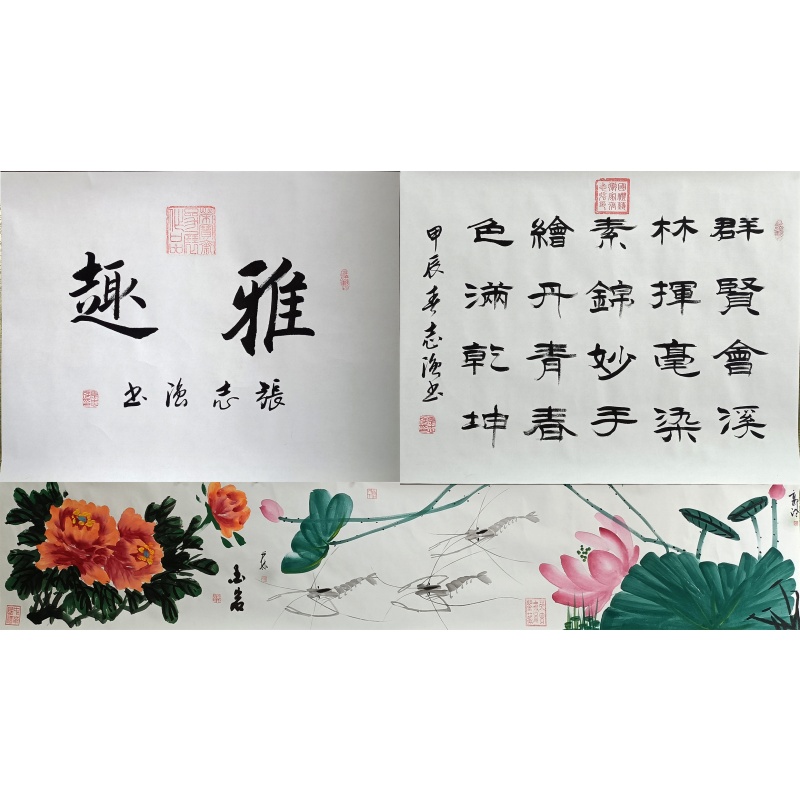 雅趣
張志强书
群賢會溪
林揮毫染
素錦妙手
繪丹青春
色滿乾坤
甲辰春志强书